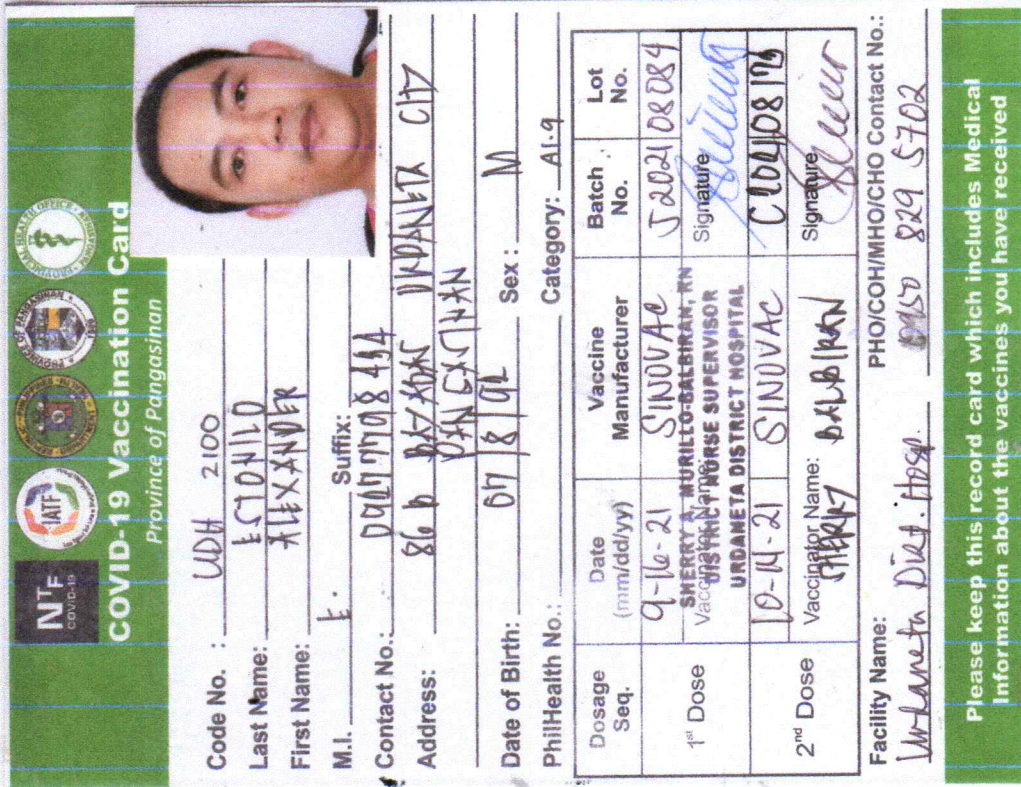 NTF
COVID-19
IATF
COVID-19 Vaccination Card
Province of Pangasinan
Code No. : UDH 2100
Last Name: ESTONILO
First Name: ALEXANDER
M.I. E. Suffix:
Contact No.:
Address: 86 b URDANETA CITY
PANGASINAN
Date of Birth: 07/8/92 Sex : M
PhilHealth No.: Category: A1.9
Dosage Seq. Date (mm/dd/yy) Vaccine Manufacturer Batch No. Lot No.
1st Dose 9-16-21 SINOVAC J202108084
Vaccinator Name: Signature
SHERRY A. MURILLO-BALBIRAN, RN
DISTRICT NURSE SUPERVISOR
URDANETA DISTRICT HOSPITAL
2nd Dose 10-14-21 SINOVAC
Vaccinator Name: BALBIRAN Signature
Facility Name: PHO/COH/MHO/CHO Contact No.:
Urdaneta Dist. Hosp. 0950 829 5702
Please keep this record card which includes Medical
Information about the vaccines you have received